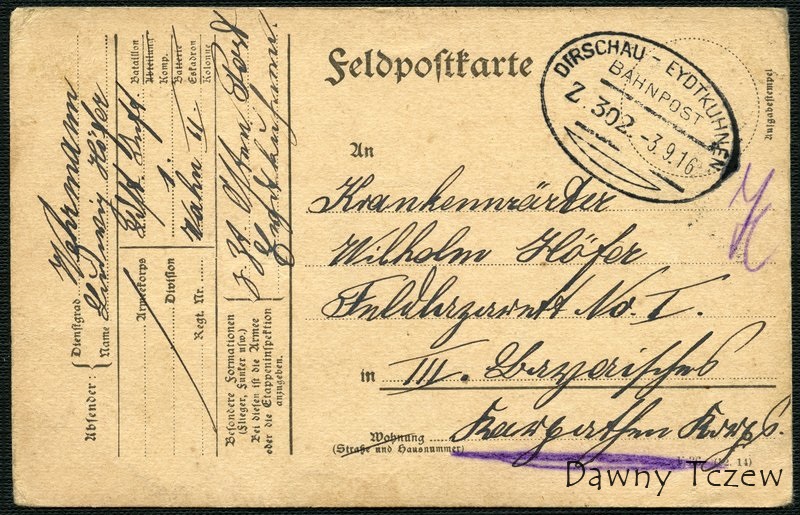 Feldpostkarte
DIRSCHAU – EYDTKUHNEN
BAHNPOST
Z. 302 -3.9.16
Ausgabestempel
An
Krankenwärter
Wilhelm Höfer
Feldlazarett No. I.
in III. Bayerisches
Karpathen Korps.
Wohnung
(Straße und Hausnummer)
Absender:
Dienstgrad Wehrmann
Name Ludwig Höfer
Bataillon
Abteilung
Komp.
Batterie
Eskadron
Kolonne
1.
Armeekorps
Division
Regt. Nr.
Besondere Formationen
(Flieger, Funker usw.)
Bei diesen ist die Armee
oder die Etappeninspektion
anzugeben.
Dawny Tczew